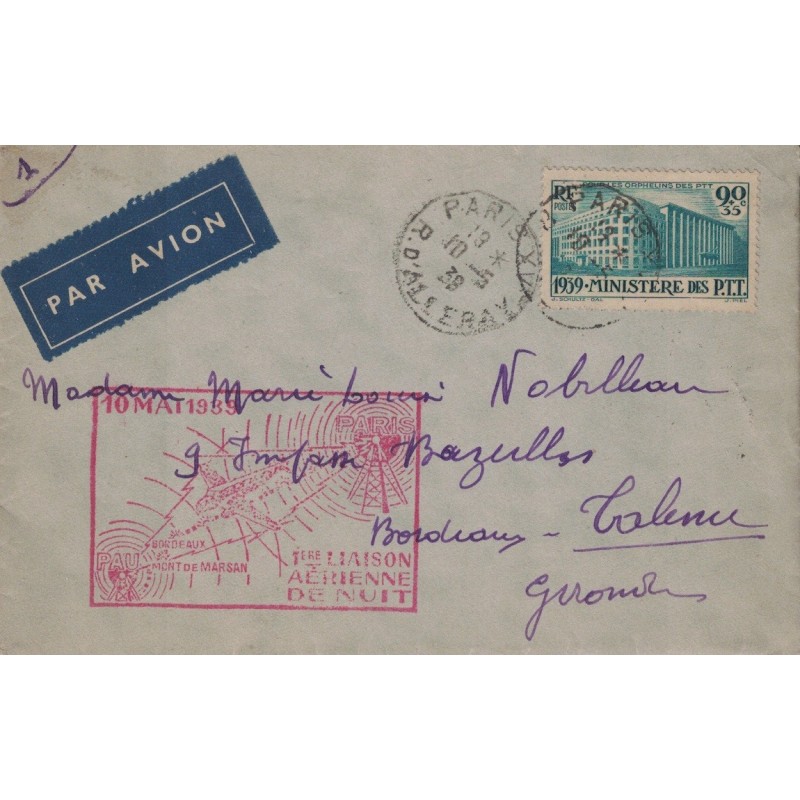 1
PAR AVION
PARIS XV
19 *
10 - 5
39
R. D'ALLERAY
RF
POSTES
POUR LES ORPHELINS DES PTT
90c
+35
1939 · MINISTÈRE DES P.T.T.
Madame Marie Louise Nobilleau
9 Impasse Bazeilles
Bordeaux - Talence
Gironde
10 MAI 1939
PARIS
BORDEAUX
PAU
MONT DE MARSAN
1ERE LIAISON
AÉRIENNE
DE NUIT